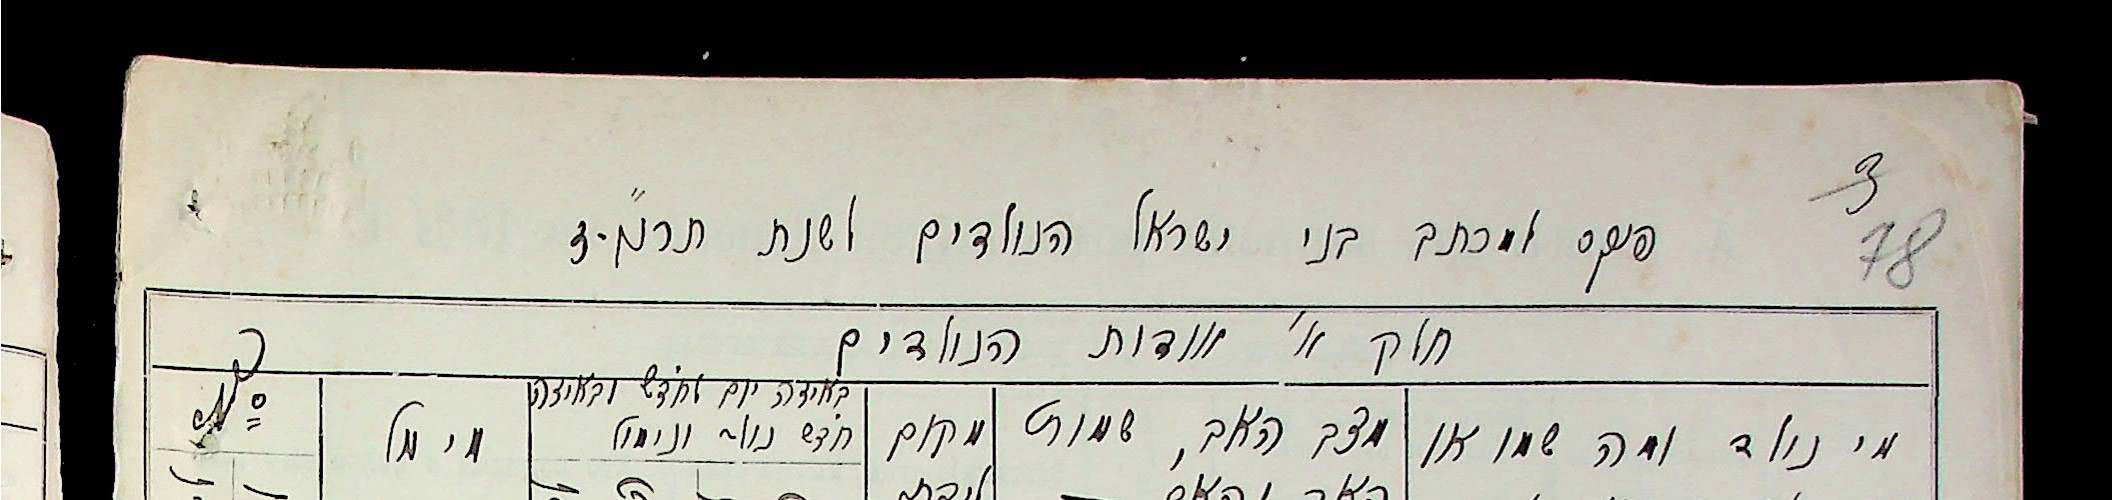 3
78
פנקס למכתב בני ישראל הנולדים לשנת
חלק א' אודות הנולדים
מי נולד ומה שמו או
מצב האב, שמות
האב והאם
מקום
לידת
באיזה יום לחדש ובאיזה
חדש נולד ונימול
מי מל
№